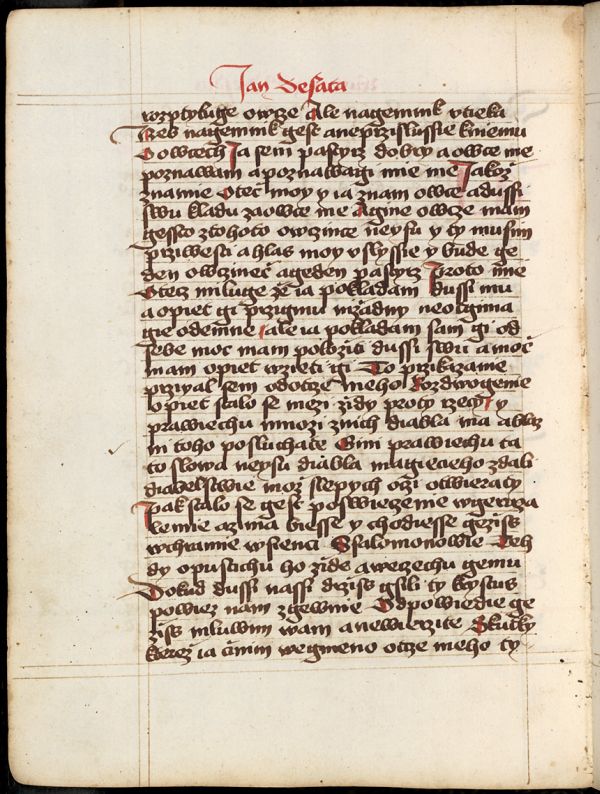 Jan desata
rozptyluge owcze Ale nagemnik vtieka
Neb nagemnik gest a neprzislussie k niemu
O owcech Ja sem pastyrz dobry a owce me
poznawam a poznawagi mie me Jakoz
znamie Otec moy y ia znam otce a dussi
swu kladu za owce me A gine owcze mam
gessto z tohoto owczince neysu y ty musim
prziwesti a hlas moy vslyssie y bude ge
den owczinec a geden pastyrz Proto mie
Otecz miluge ze ia pokladam dussi mu
a opiet gi przigmu nizadny neotgima
gie odemne ale ia pokladam sam gi od
sebe moc mam poloziti dussi swu a moc
mam opiet wzieti gi To przikazanie
przigal sem od otcze meho Rozdwogenie
opiet stalo se mezi zidy proty rzeczi y
prawiechu mnozi z nich diabla ma a blaz
ni to ho posluchate Gini prawiechu ta
to slowa neysu diabla magicieho zdali
diabelstwie moz slepych oczi otwieraty
Pak stalo se gest poswieczenie w geruza
lemie a zima biesse y chodiesse geziss
w chramie w sienci Ssalomonowie Teh
dy opustichu ho zide a wecechu gemu
Dokud dussi nassi drziss gsili ty krystus
powiez nam zgewnie Odpowiedie ge
ziss mluwim wam a newierzite Skutky
kterez ia cinim we gmeno otcze meho ty